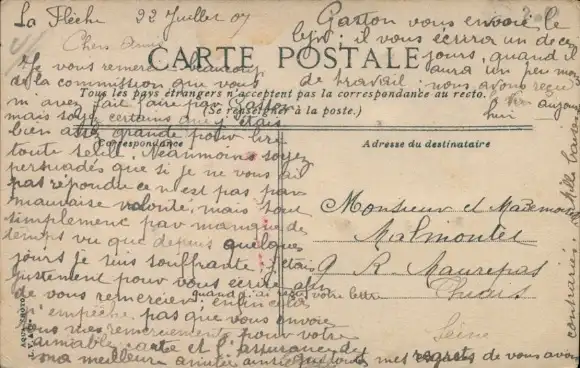 La Flèche 22 Juillet 07
Chers Amis
Je vous remercie beaucoup
de la commission que vous
m'avez fait faire par Gaston
mais soyez certains que j'étais
bien assez grande pour lire
toute seule. Néanmoins soyez
persuadés que si je ne vous ai
pas répondu ce n'est pas par
mauvaise volonté, mais tout
simplement par manque de
temps vu que depuis quelques
jours je suis souffrante j'étais
justement pour vous écrire afin
de vous remercier quand j'ai reçu votre lettre
n'empêche pas que vous envoie
mes remerciements pour votre
aimable carte et l'assurance de
ma meilleure amitié ainsi que tous mes regrets de vous avoir
contrariés. Mille baisers
Gaston vous envoie le
bjr; il vous écrira un de ces
jours, quand il
aura un peu moins
de travail. nous avons reçu
aujourd
hui
CARTE POSTALE
Tous les pays étrangers n'acceptent pas la correspondance au recto.
(Se renseigner à la poste.)
Correspondance
Adresse du destinataire
Monsieur et Mademoiselle
Malmontet
9 R. Maurepas
Thiais
Seine